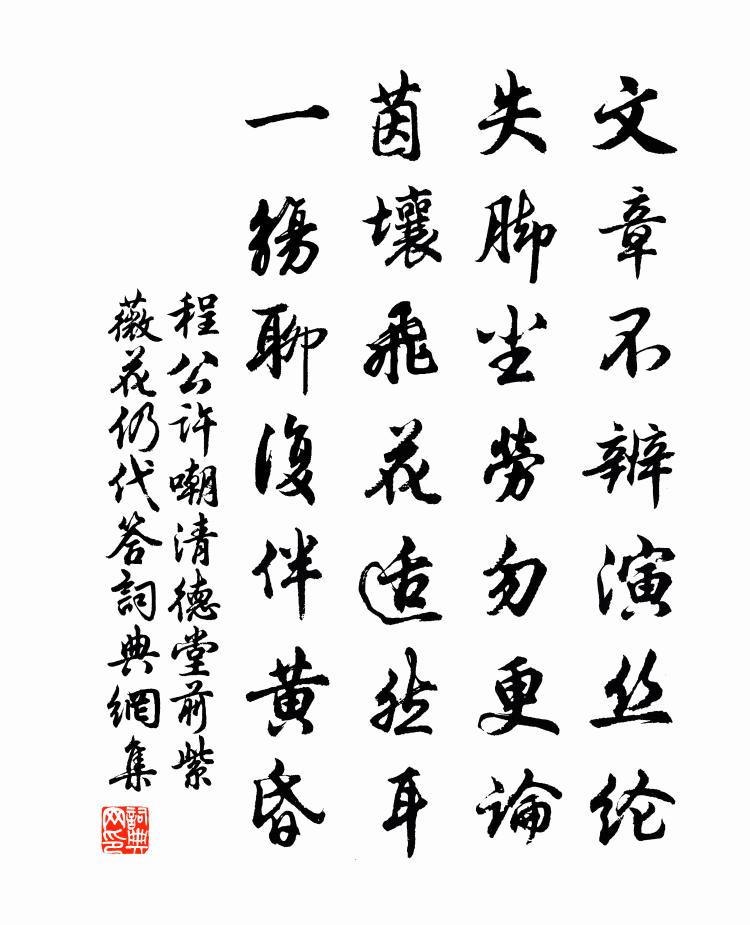 文章不辨演丝纶
失脚尘劳勿更论
茵壤飛花适然耳
一觞聊復伴黄昏
程公许嘲清德堂前紫
薇花仍代答詞典網集
詞典网印